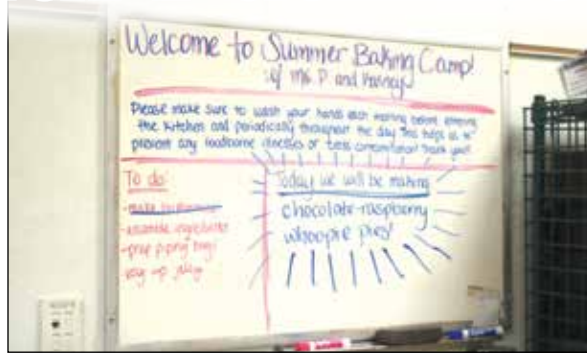 Welcome to Summer Baking Camp!
w/ Ms. P and
Please make sure to wash your hands each morning before entering
the kitchen and periodically throughout the day. This helps us to
prevent any foodborne illnesses or cross contamination! Thank you!
To do:
- make
- assemble ingredients
- prep piping bags
Today we will be making
chocolate-raspberry
whoopie pies!